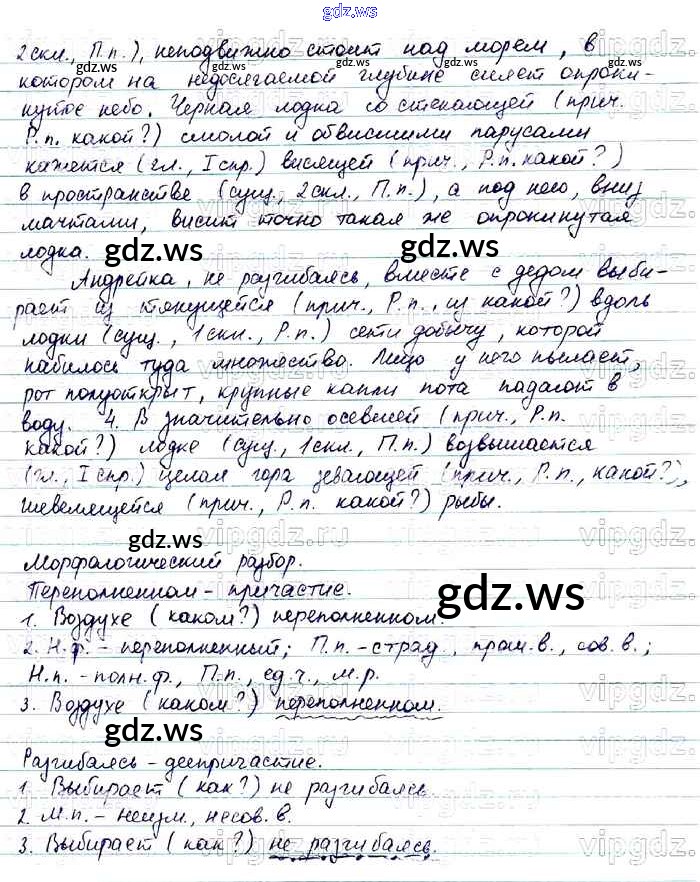 gdz.ws
2 скл., П.п.), неподвижно стоит над морем, в
котором на недосягаемой глубине сияет опроки-
нутое небо. Черная лодка со стекающей (прич.
Р.п. какой?) смолой и обвисшими парусами
кажется (гл., I спр.) висящей (прич., Р.п. какой?)
в пространстве (сущ., 2 скл., П.п.), а под нею, вниз
мачтами, висит точно такая же опрокинутая
лодка.
Андрейка, не разгибаясь, вместе с дедом выби-
рает из тянущейся (прич., Р.п., из какой?) вдоль
лодки (сущ., 1 скл., Р.п.) сети добычу, которой
набилось туда множество. Лицо у него пылает,
рот полуоткрыт, крупные капли пота падают в
воду. 4. В значительно осевшей (прич., Р.п.
какой?) лодке (сущ., 1 скл., П.п.) возвышается
(гл., I спр.) целая гора зевающей (прич., Р.п., какой?),
шевелящейся (прич., Р.п. какой?) рыбы.
Морфологический разбор.
Переполненном - причастие.
1. Воздухе (каком?) переполненном.
2. Н.ф. - переполненный; П.п. - страд., прош.в., сов.в.;
Н.п. - полн.ф., П.п., ед.ч., м.р.
3. Воздухе (каком?) переполненном.
Разгибаясь - деепричастие.
1. Выбирает (как?) не разгибаясь.
2. М.п. - неизм., несов. в.
3. Выбирает (как?) не разгибаясь.